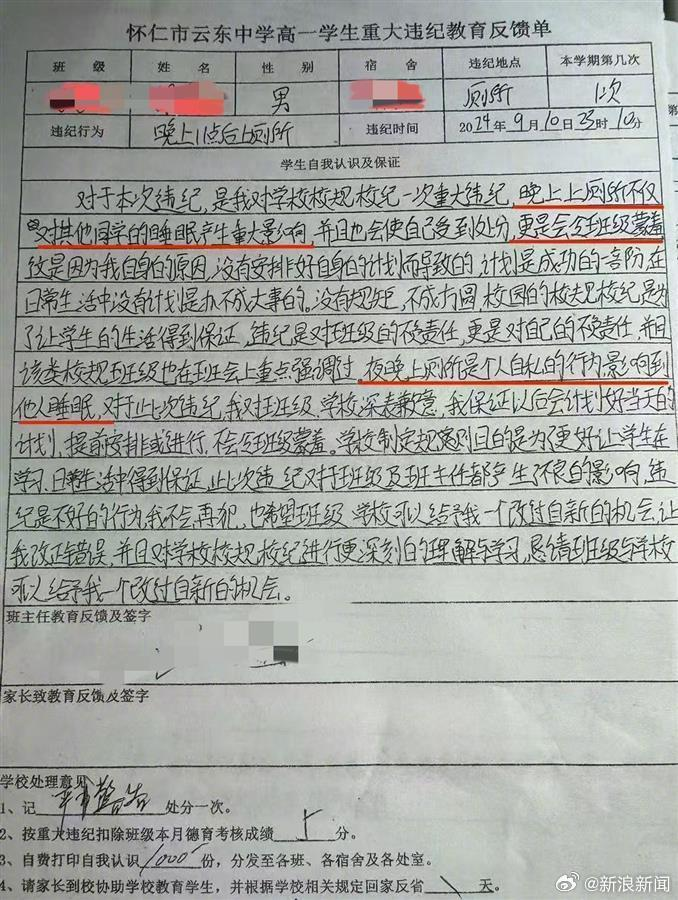 怀仁市云东中学高一学生重大违纪教育反馈单
班 级 姓 名 性 别 宿 舍 违纪地点 本学期第几次
男 厕所 1次
违纪行为 晚上11点后上厕所 违纪时间 2024年9月10日23时10分
学生自我认识及保证
对于本次违纪,是我对学校校规校纪一次重大违纪,晚上上厕所不仅
对其他同学的睡眠产生重大影响,并且也会使自己受到处分,更是会令班级蒙羞
这是因为我自身的原因,没有安排好自身的计划而导致的,计划是成功的一部份,在
日常生活中没有计划是办不成大事的。没有规矩,不成方圆,校园的校规校纪是为
了让学生的生活得到保证,违纪是对班级的不负责任,更是对自己的不负责任,并且
该类校规班级也在班会上重点强调过,夜晚上厕所是个人自私的行为影响到
他人睡眠,对于此次违纪,我对班级、学校深表歉意,我保证以后会计划好当天的
计划,提前安排或进行,不会令班级蒙羞。学校制定规则目的是为了更好让学生在
学习、日常生活中得到保证,此次违纪对于班级及班主任都产生了不良的影响,违
纪是不好的行为我不会再犯,也希望班级、学校可以给予我一个改过自新的机会,让
我改正错误,并且对学校校规、校纪进行更深刻的理解与学习,恳请班级与学校
可以给予我一个改过自新的机会。
班主任教育反馈及签字
家长致教育反馈及签字
学校处理意见
1、记 警告 处分一次。
2、按重大违纪扣除班级本月德育考核成绩 分。
3、自费打印自我认识 1000 份,分发至各班、各宿舍及各处室。
4、请家长到校协助学校教育学生,并根据学校相关规定回家反省 \ 天。
@新浪新闻